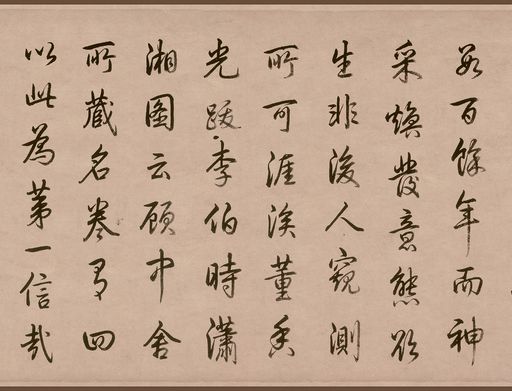 數百餘年而神
采煥發意態欲
生非後人窺測
所可涯涘董香
光跋李伯時瀟
湘圖云顧中舍
所藏名卷有四
以此為第一信哉